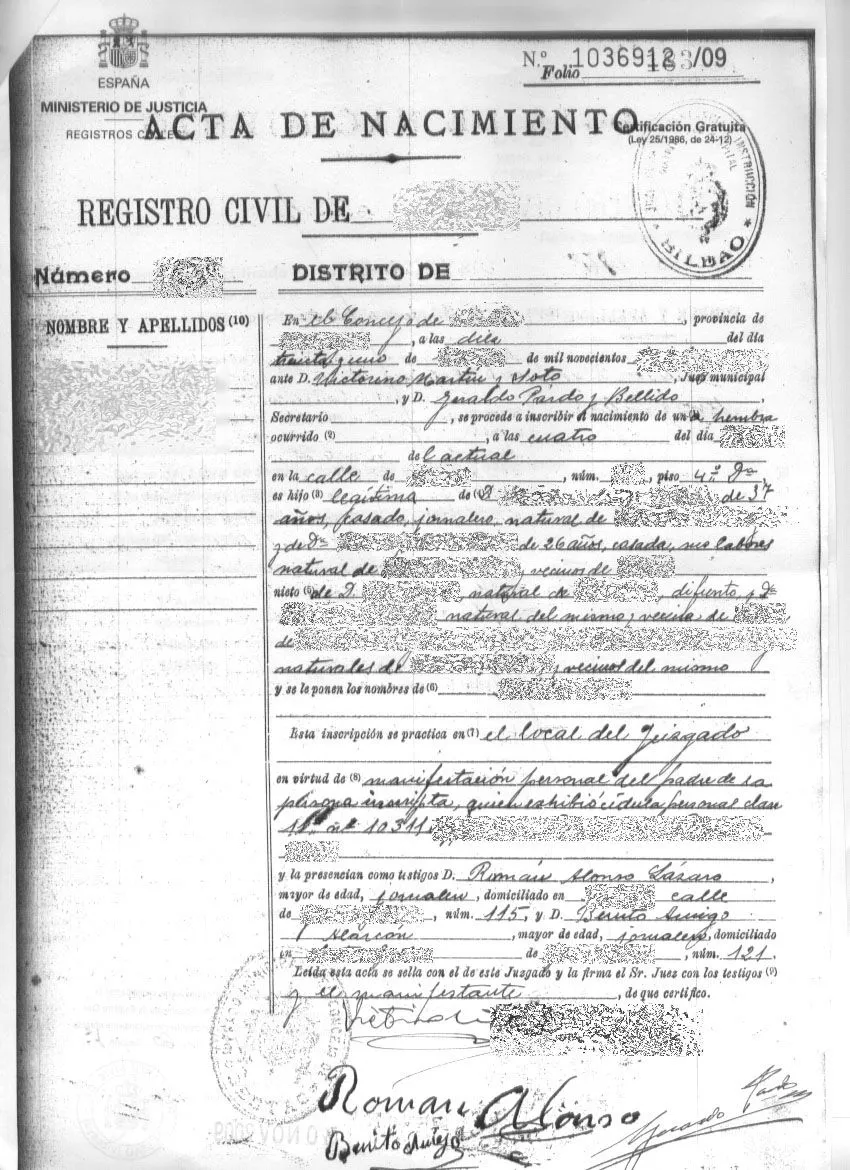 ESPAÑA
MINISTERIO DE JUSTICIA
REGISTROS
N.º 1036912 /09
Folio 183
ACTA DE NACIMIENTO
Certificación Gratuita
(Ley 25/1986, de 24-12)
INSTRUCCION
BILBAO
REGISTRO CIVIL DE
Número
DISTRITO DE
NOMBRE Y APELLIDOS (10)
En el Concejo de , provincia de
, a las diez del día
treinta y uno de de mil novecientos
ante D. Victoreno Martín y Soto , Juez municipal
, y D. Geraldo Pardo y Bellido
Secretario , se procede a inscribir el nacimiento de una hembra
ocurrido (2) , a las cuatro del día
del actual
en la calle de , núm. , piso 4º Dª
es hijo (3) legítima de D. de 37
años, casado, jornalero, natural de
y de Dª de 26 años, casada, sus labores
natural de , vecinos de
nieto de D. , natural de , difunto, y Dª
natural del mismo y vecina de
de
naturales de y vecinos del mismo
y se le ponen los nombres de (6)
Esta inscripción se practica en (7) el local del Juzgado
en virtud de (8) manifestación personal del padre de la
persona inscripta, quien exhibió cédula personal clase
11ª nº 10311
y la presencian como testigos D. Román Alonso Lázaro
mayor de edad, jornalero, domiciliado en calle
de , núm. 115, y D. Benito Amigo
Alarcón , mayor de edad, jornalero, domiciliado
en de , núm. 121.
Leída esta acta se sella con el de este Juzgado y la firma el Sr. Juez con los testigos (9)
y el manifestante , de que certifico.
Roman Alonso
Benito Amigo
Gerardo Pardo
NOV 2009